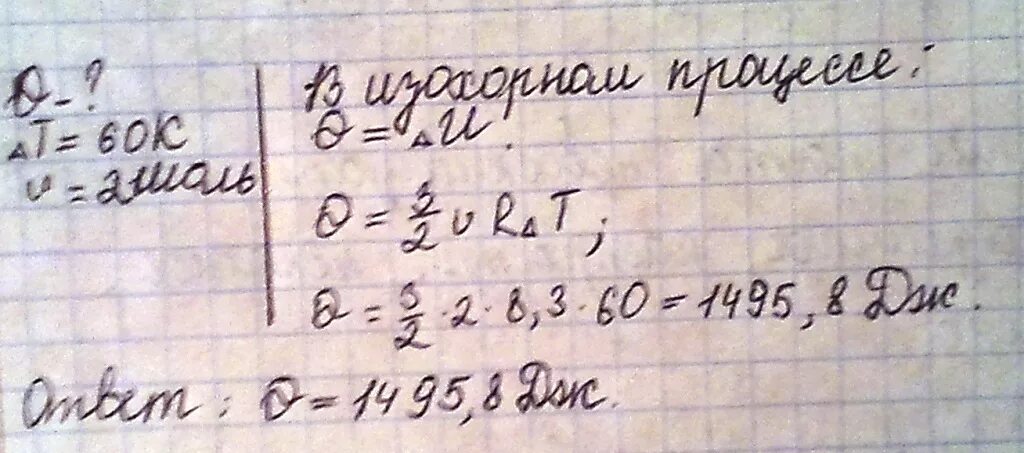 Q - ?
ΔT = 60К
υ = 2 моль
В изохорном процессе:
Q = ΔU.
Q = 3/2 υ RΔT;
Q = 3/2 · 2 · 8,3 · 60 = 1495,8 Дж.
Ответ: Q = 1495,8 Дж.